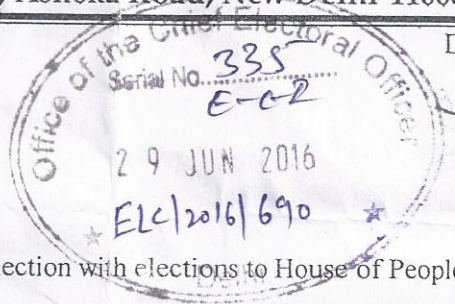 Ashoka Road, New Delhi 1100
Office of the Chief Electoral Officer
Serial No. 335
E-C-2
29 JUN 2016
ELC/2016/690
Delhi
ection with elections to House of People